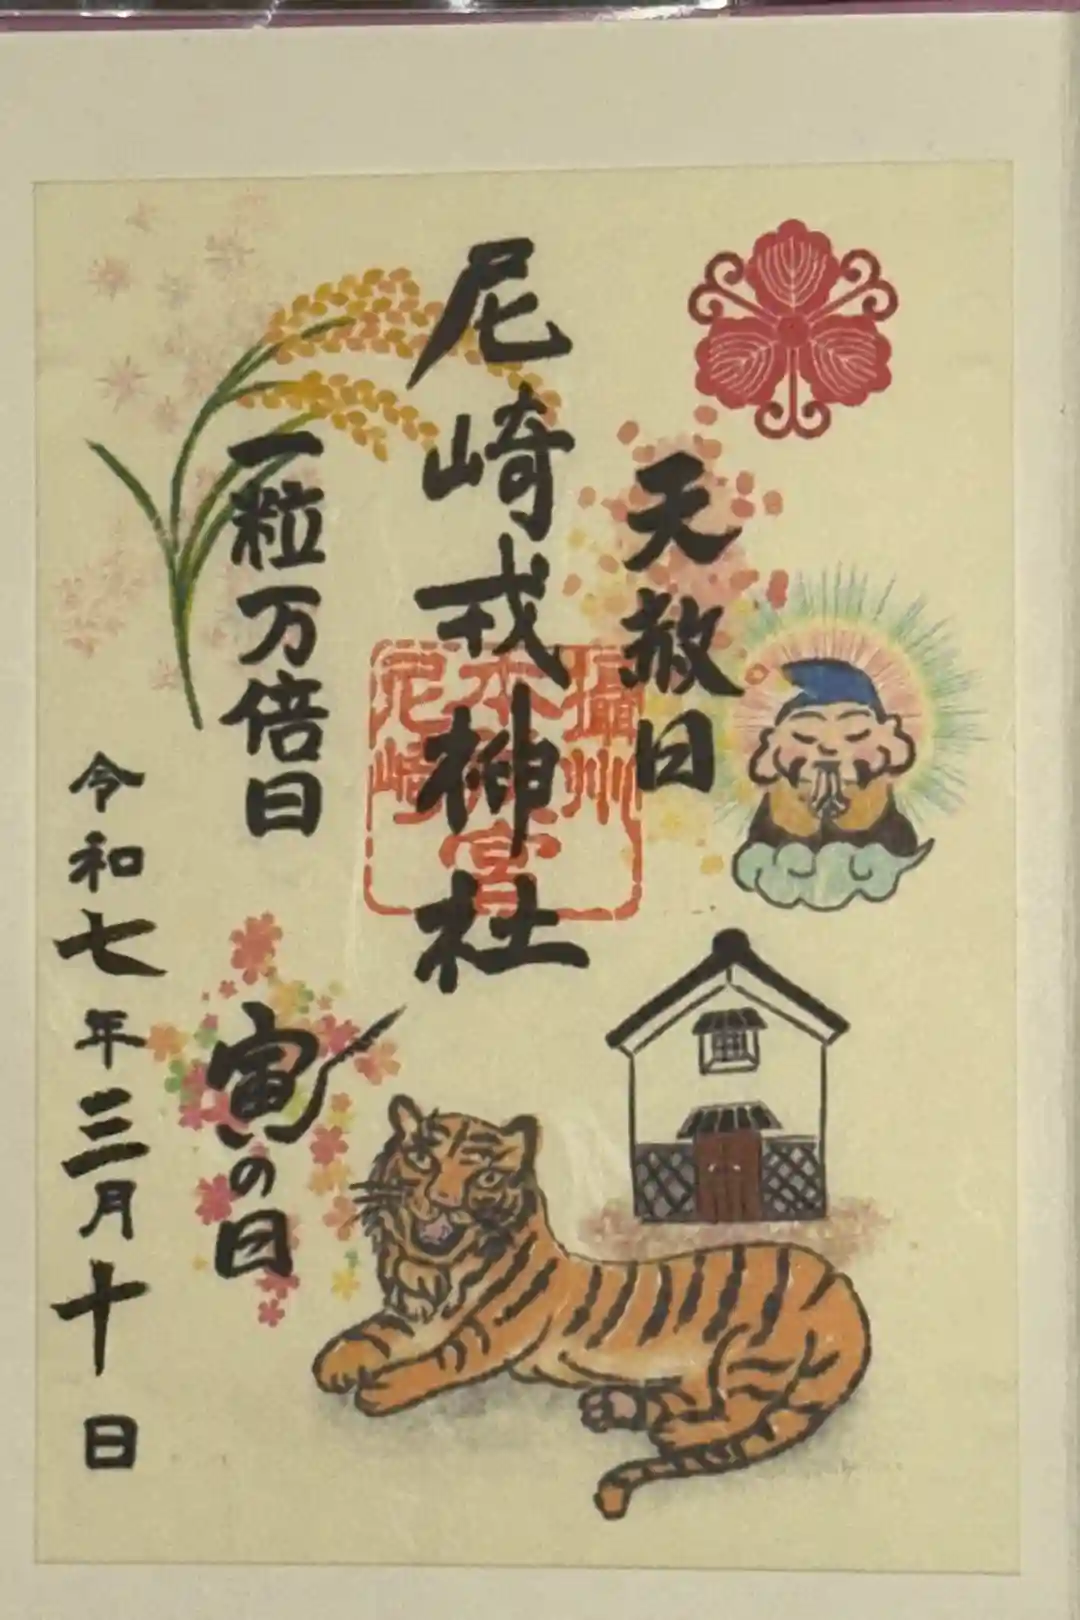 天赦日
尼崎戎神社
攝州
本
宮
尼崎
一粒万倍日
寅の日
令和七年三月十日